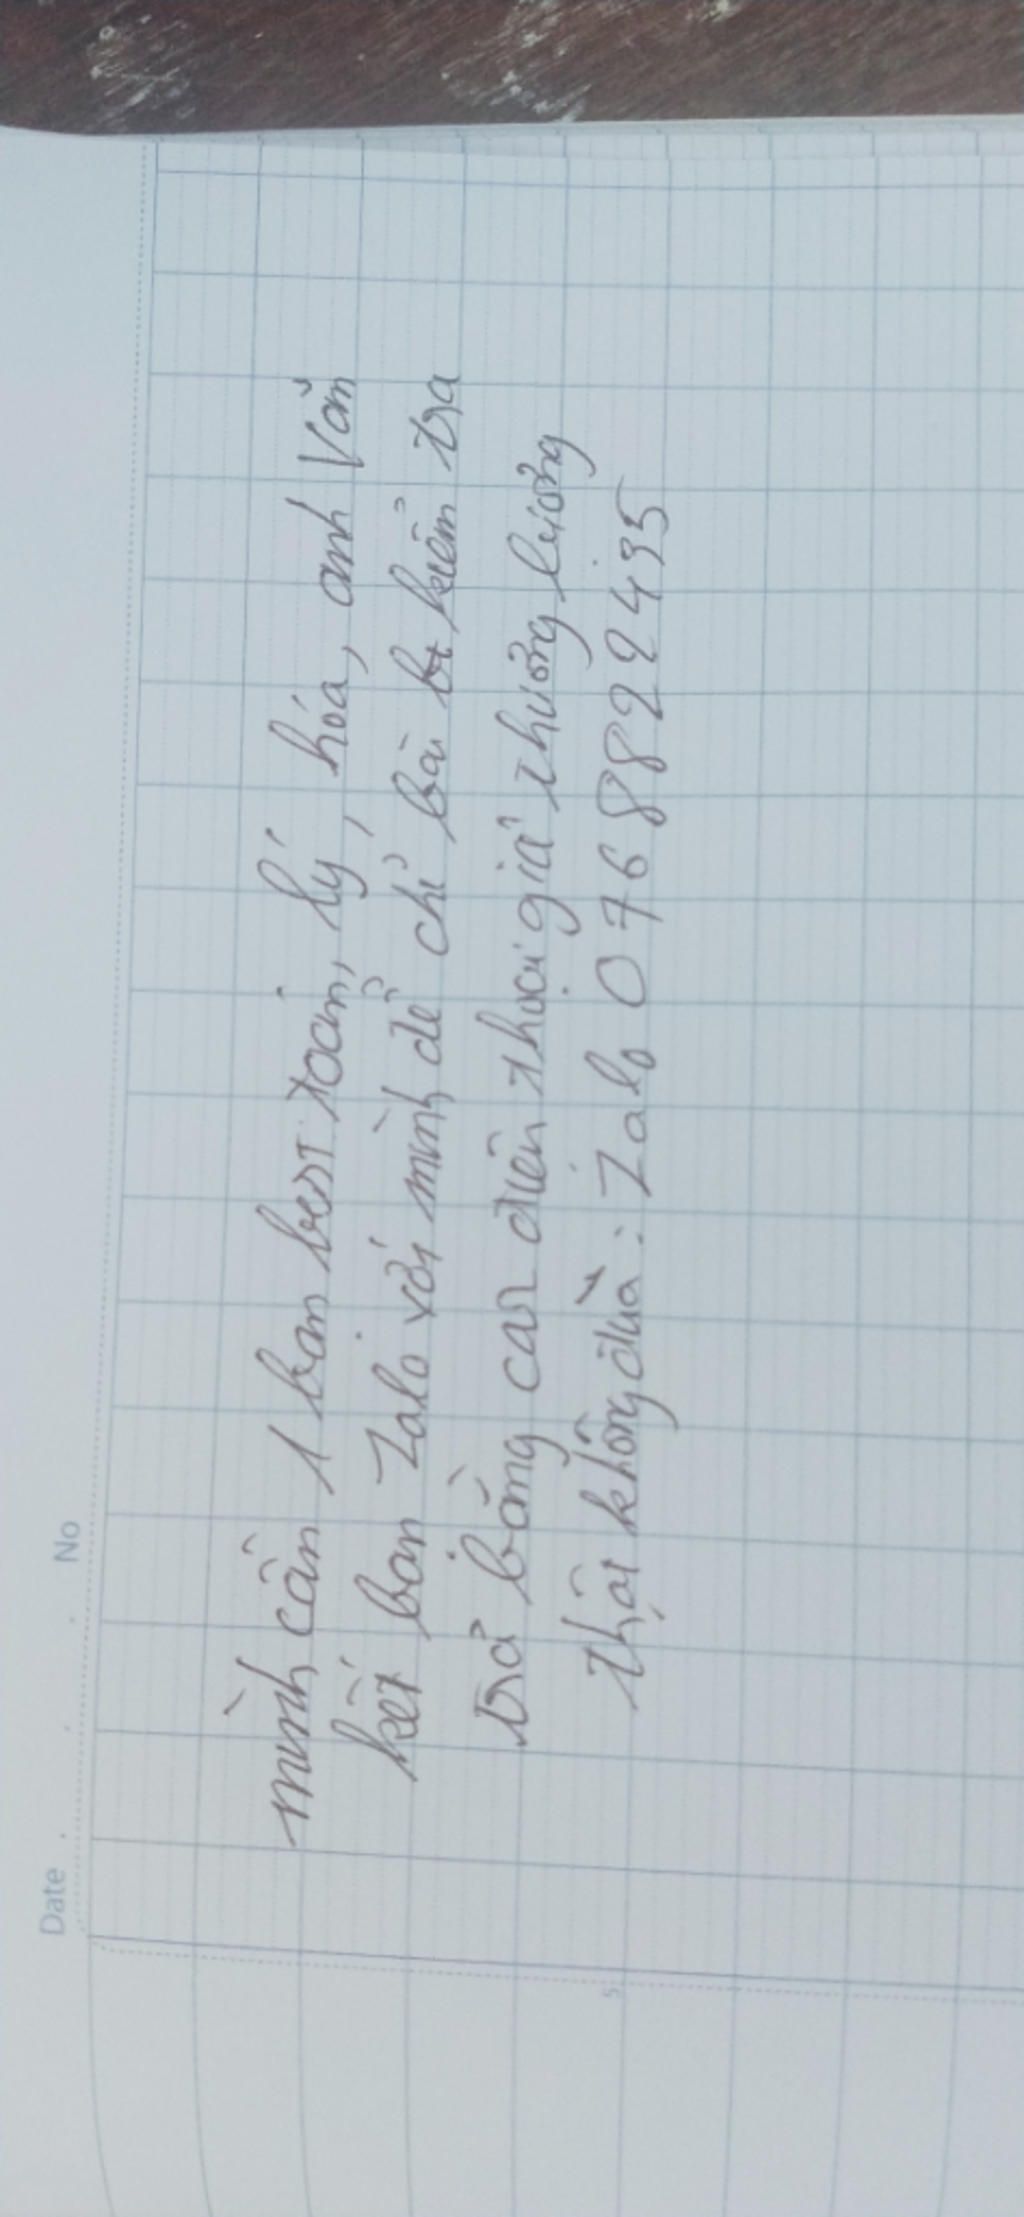 Date No
mình cần 1 bạn best toán, lý, hóa, anh Văn
kết bạn Zalo với mình để chỉ bài bt kiểm tra
trả bằng cat điện thoại giá thương lượng
thật không đùa: Zalo 0768822435
5